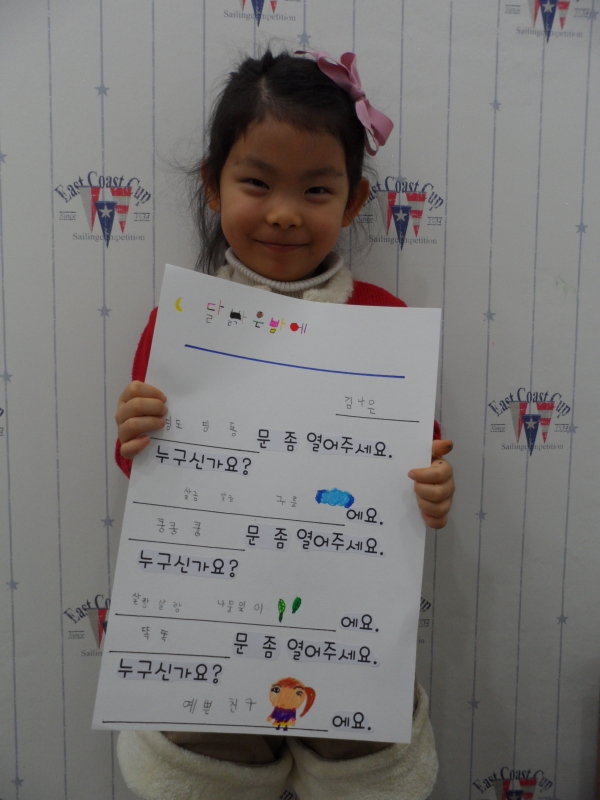 달 밝은 밤에
김나은
문 좀 열어주세요.
누구신가요?
살금 살금 구름 에요.
쿵쿵 쿵 문 좀 열어주세요.
누구신가요?
살랑 살랑 나뭇잎 이 에요.
똑 똑 문 좀 열어주세요.
누구신가요?
예쁜 친구 에요.
East Coast Cup
Sailing Competition
East Coast Cup
Sailing Competition
East Coast Cup
Sailing Competition
East Coast Cup